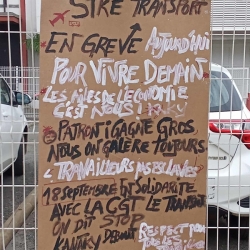 STRE TRANSPORT
EN GREVE AUJOURD'HUI
POUR VIVRE DEMAIN
LES AILES DE L'ECONOMIE
C'EST NOUS! KNKY
PATRON! GAGNE GROS
NOUS ON GALERE TOUJOURS
TRAVAILLEURS PAS ESCLAVES
18 SEPTEMBRE EN SOLIDARITE
AVEC LA CGT LE TRANSPORT
ON DIT STOP
KANAKY DEBOUT RESPECT POUR